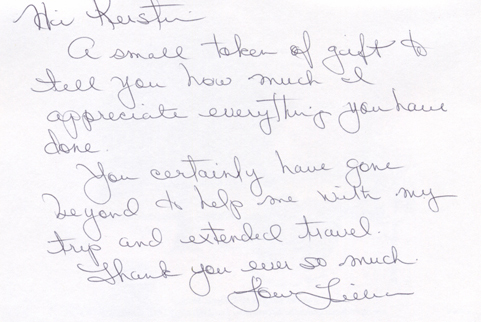 Hi Kerstin
A small token of gift to
tell you how much I
appreciate everything you have
done.
You certainly have gone
beyond to help me with my
trip and extended travel.
Thank you ever so much.